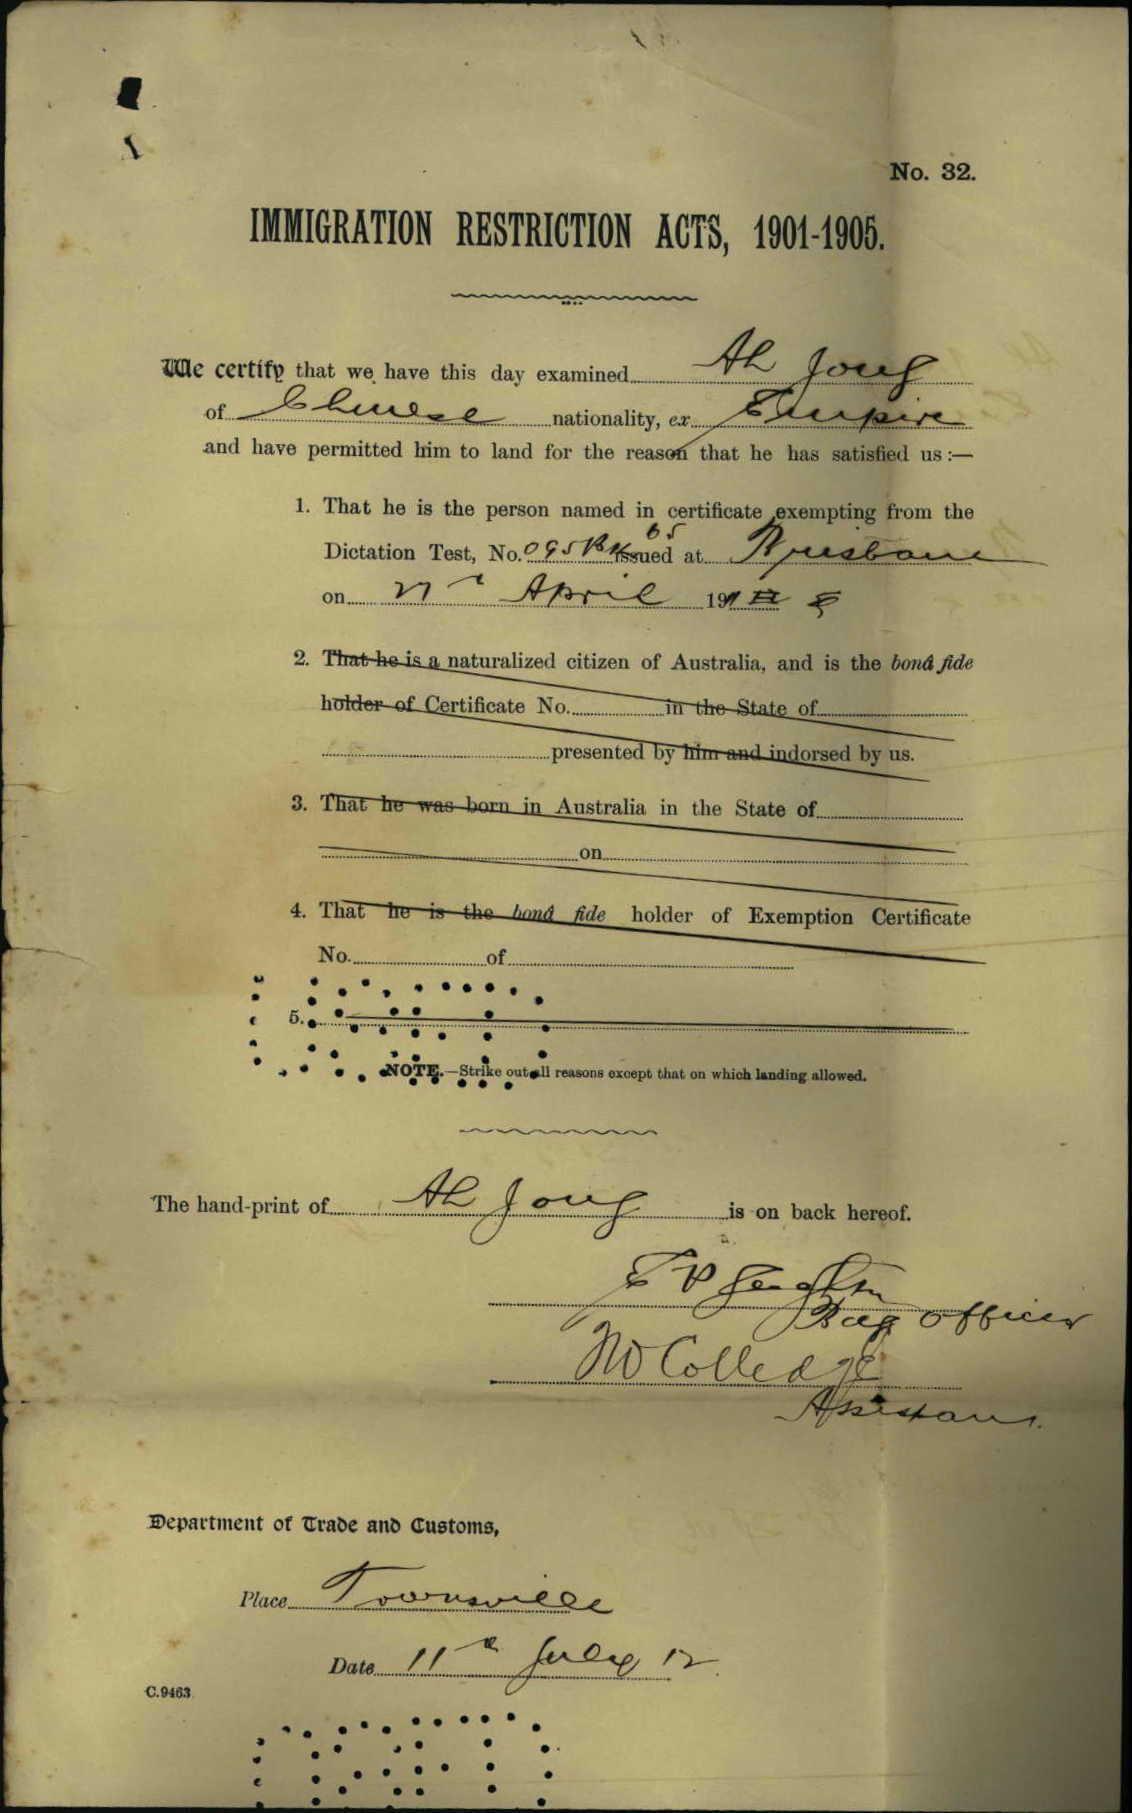 No. 32.
IMMIGRATION RESTRICTION ACTS, 1901-1905.
We certify that we have this day examined Ah Jong
of Chinese nationality, ex Empire
and have permitted him to land for the reason that he has satisfied us :—
1. That he is the person named in certificate exempting from the
65
Dictation Test, No. issued at Brisbane
on 27th April 19
2. That he is a naturalized citizen of Australia, and is the bonâ fide
holder of Certificate No. in the State of
presented by him and indorsed by us.
3. That he was born in Australia in the State of
on
4. That he is the bonâ fide holder of Exemption Certificate
No. of
5.
NOTE.—Strike out all reasons except that on which landing allowed.
The hand-print of Ah Jong is on back hereof.
E P
Officer
Colledge
Assistant.
Department of Trade and Customs,
Place Townsville
Date 11th July 12
C.9463